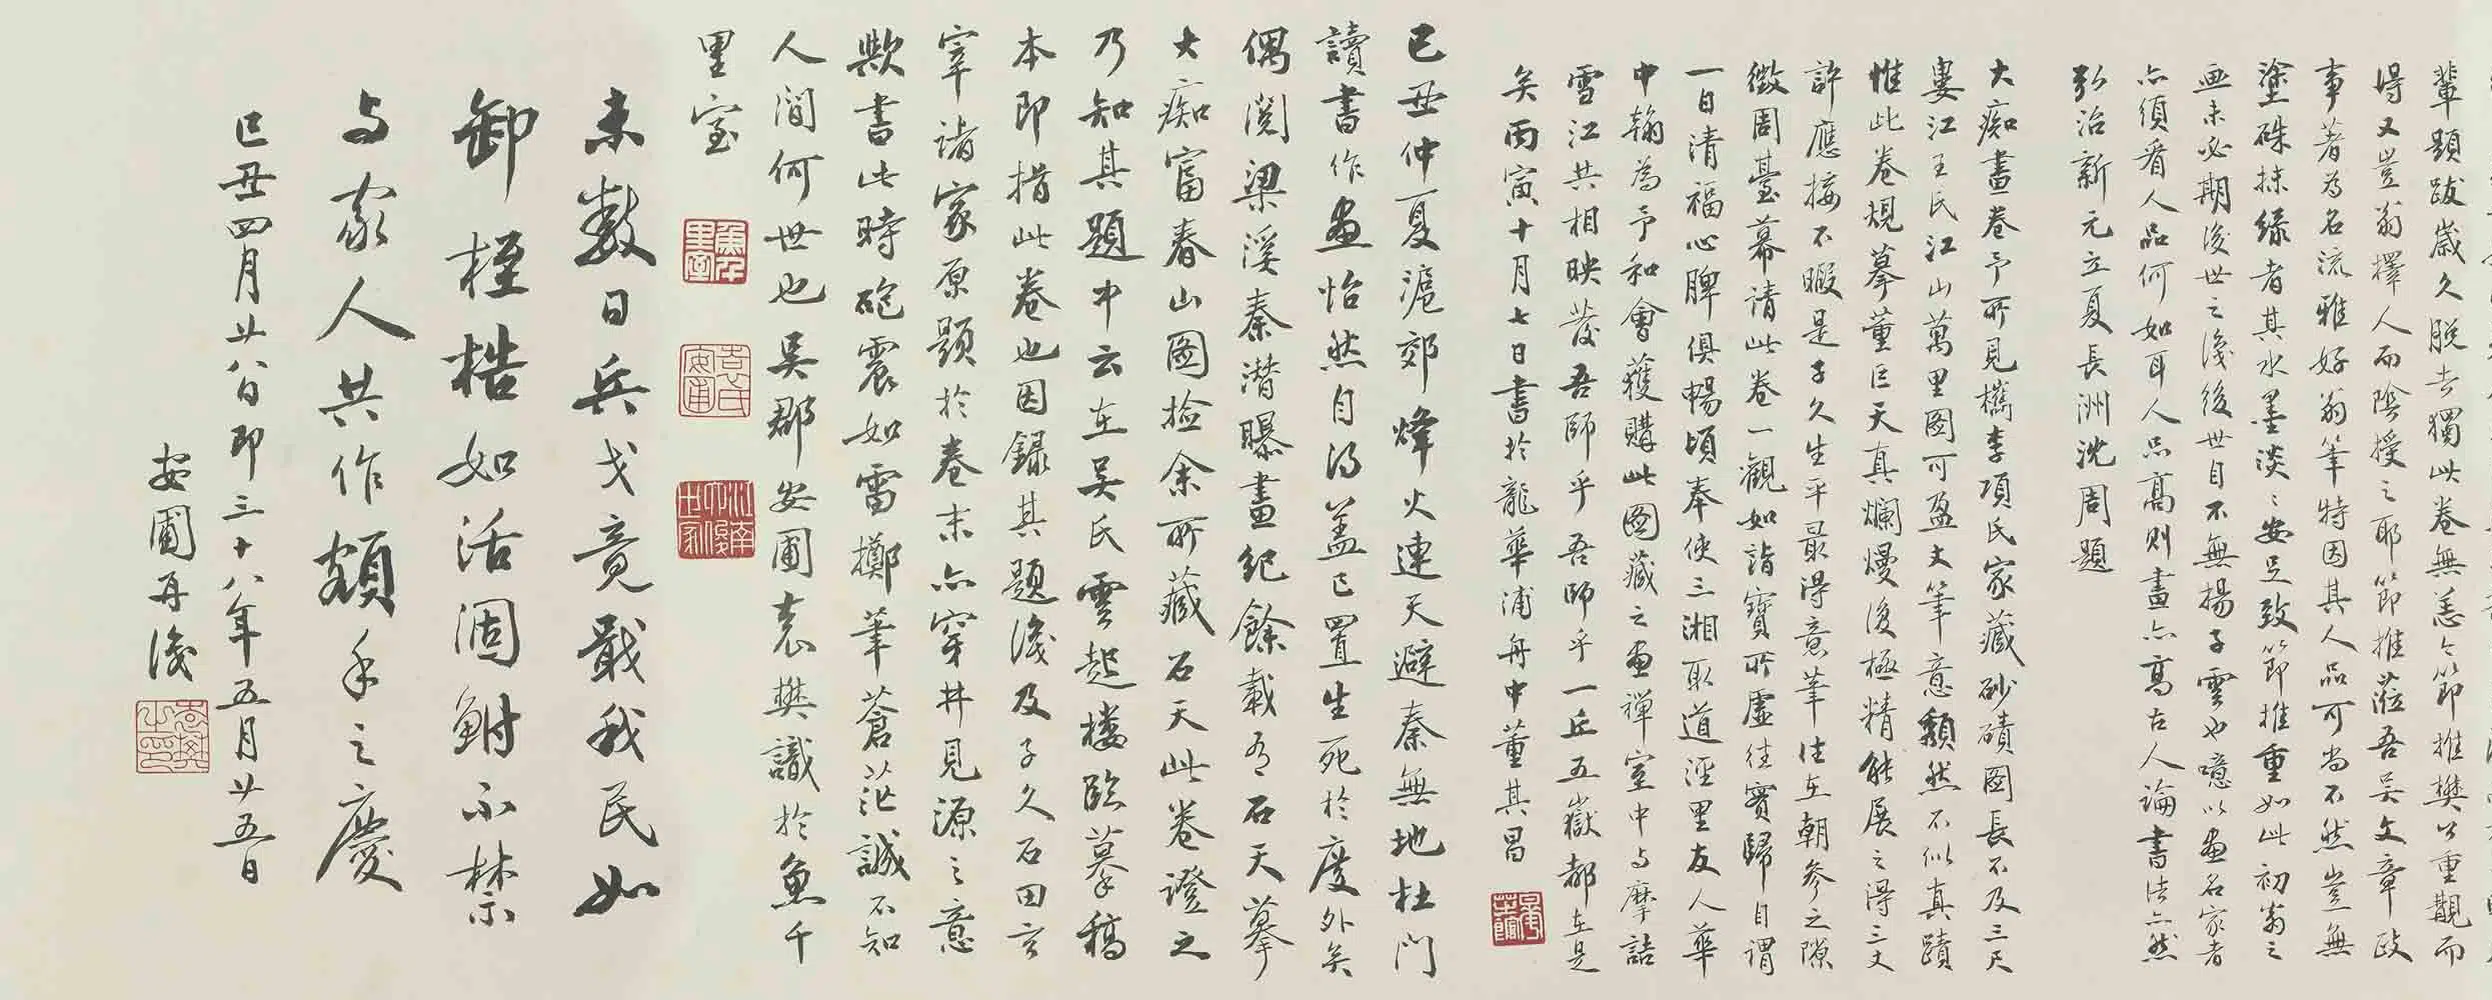 輩題跋歲久脫去獨此卷無恙今節推樊公重觀而
得又豈翁擇人而陰授之耶節推蒞吾吳文章政
事著為名流雅好翁筆特因其人品可尚不然豈無
塗硃抹綠者其水墨淡淡安足致節推重如此初翁之
畫未必期後世之識後世自不無揚子雲也噫以畫名家者
亦須看人品何如耳人品高則畫亦高古人論書法亦然
弘治新元立夏長洲沈周題
大癡畫卷予所見檇李項氏家藏砂磧圖長不及三尺
婁江王氏江山萬里圖可盈丈筆意頹然不似真蹟
惟此卷規摹董巨天真爛熳復極精能展之得三丈
許應接不暇是子久生平最得意筆往在朝參之隙
徵周臺幕請此卷一觀如詣寶所虛往實歸自謂
一日清福心脾俱暢頃奉使三湘取道涇里友人華
中翰為予和會獲購此圖藏之畫禪室中与摩詰
雪江共相映發吾師乎吾師乎一丘五嶽都在是
矣丙寅十月七日書於龍華浦舟中董其昌
己丑仲夏滬郊烽火連天避秦無地杜門
讀書作畫怡然自得蓋已置生死於度外矣
偶閱梁溪秦潛曝畫紀餘載有石天摹
大癡富春山圖檢余所藏石天此卷證之
乃知其題中云在吳氏雲起樓臨摹稿
本即指此卷也因錄其題識及子久石田玄
宰諸家原題於卷末亦穿井見源之意
歟書此時砲震如雷擲筆蒼茫誠不知
人間何世也吳郡安圃袁樊識於魚千
里室
未數日兵戈竟戢我民如
卸桎梏如活涸鮒不禁
与家人共作額手之慶
己丑四月廿八日即三十八年五月廿五日
安圃再識
魚千里室
袁氏安圃
江南大俊世家